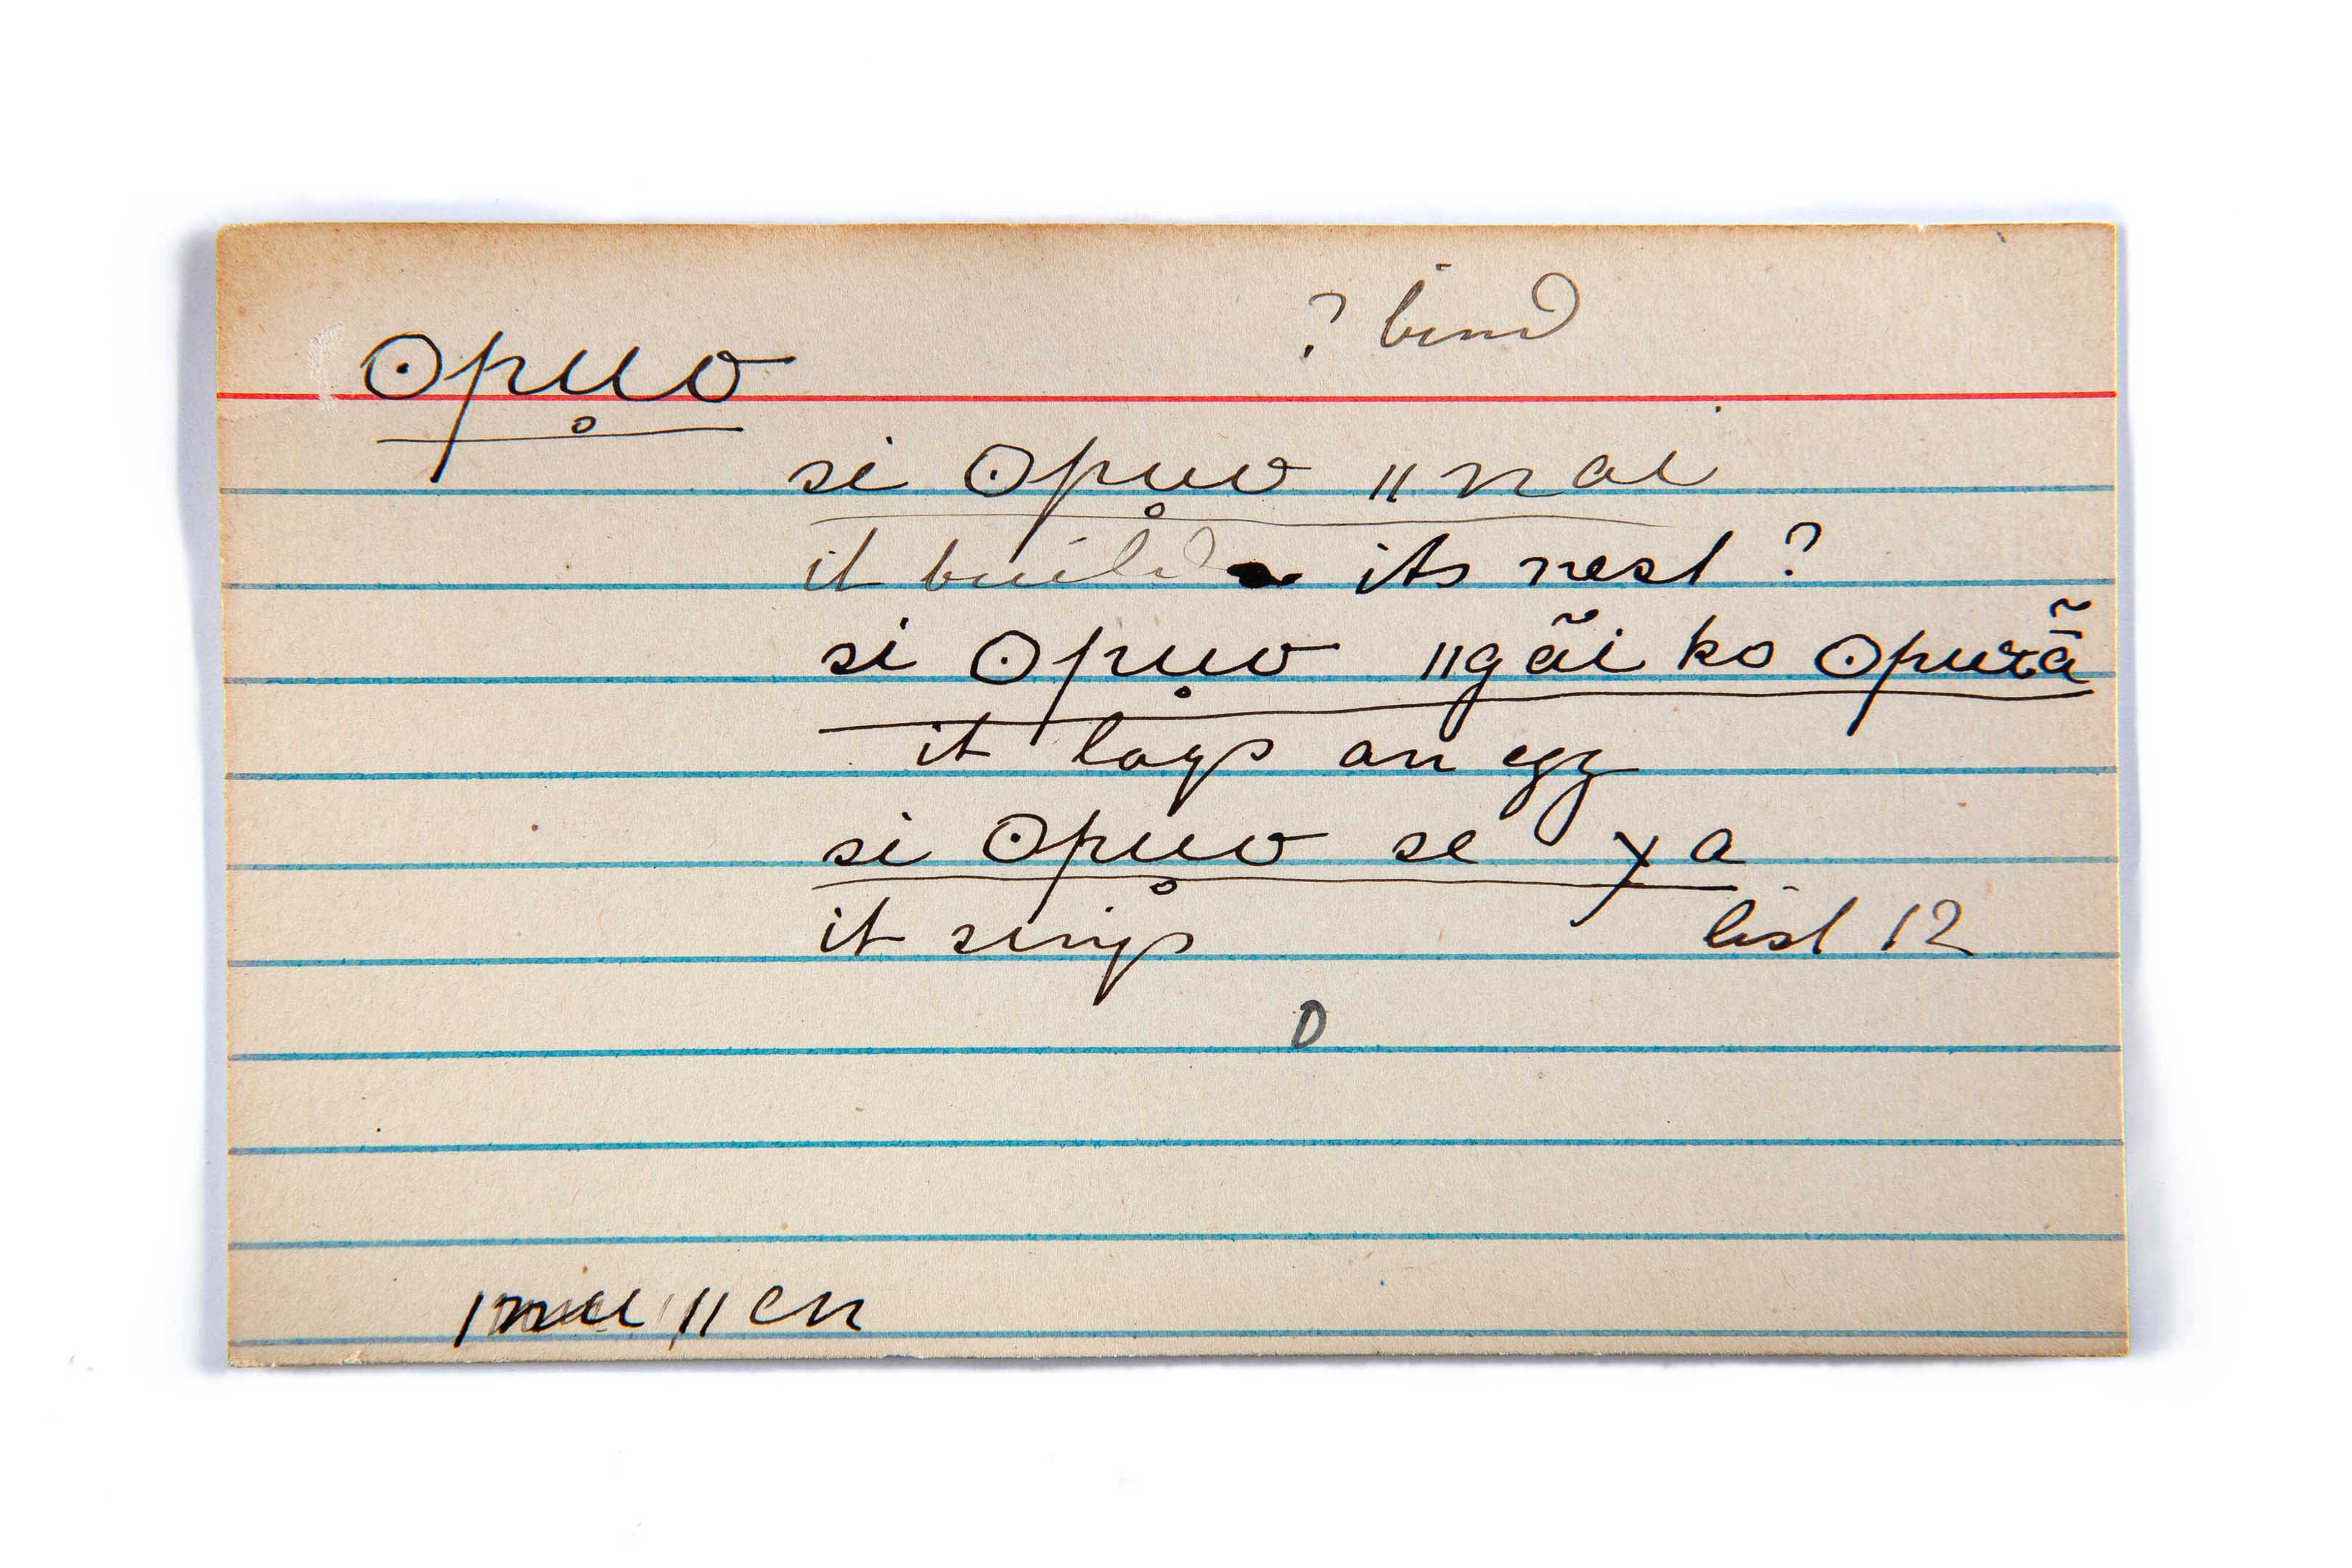 ? bind
ʘpu̥o
si ʘpu̥o ǁnai
it builds its nest ?
si ʘpu̥o ǁgãi ko ʘpuxã̄
it lays an egg
si ʘpu̥o se χa
it sings list 12
D
ǁen